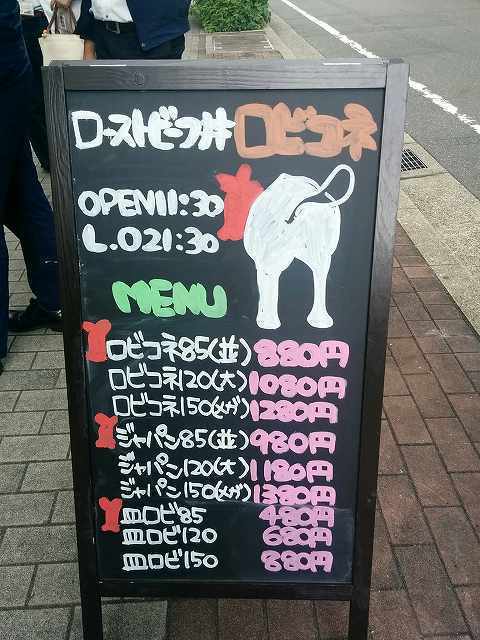 ローストビーフ丼 ロビコネ
OPEN11:30
L.O21:30
MENU
ロビコネ85(並) 880円
ロビコネ120(大) 1080円
ロビコネ150(メガ) 1280円
ジャパン85(並) 980円
ジャパン120(大) 1180円
ジャパン150(メガ) 1380円
皿ロビ85 480円
皿ロビ120 680円
皿ロビ150 880円